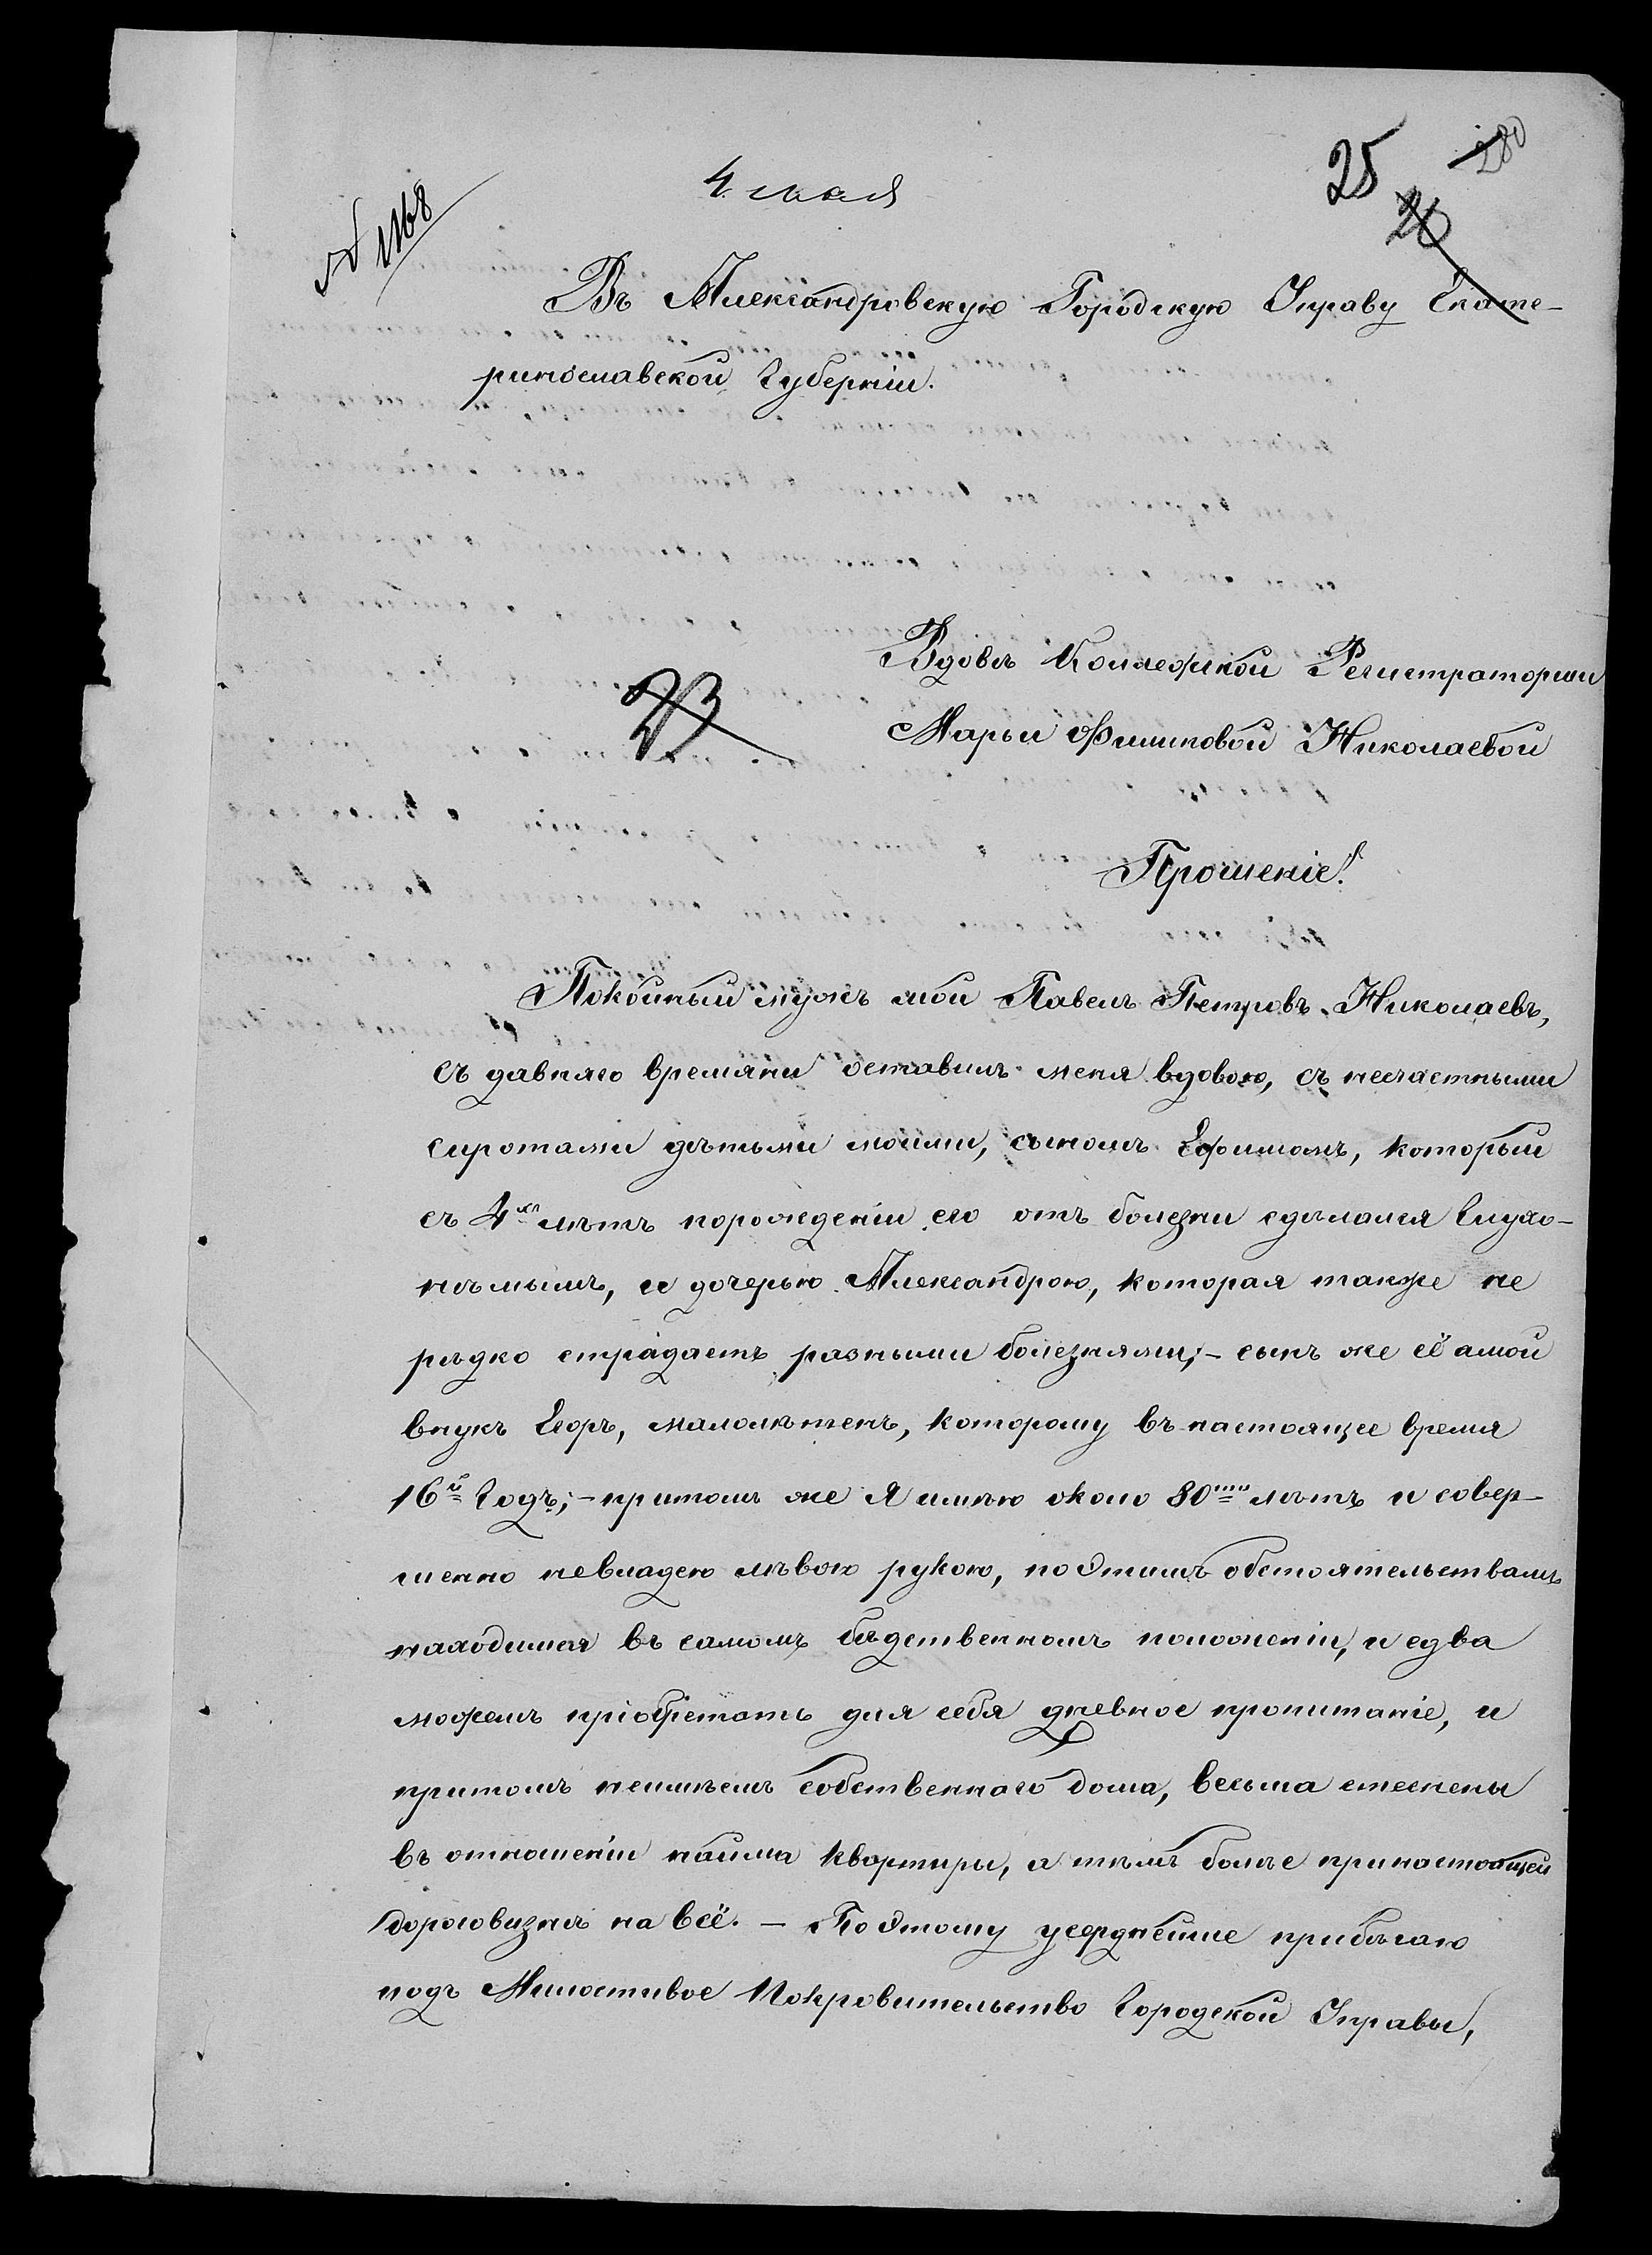 4 мая
25
280
26
№ 1168
Въ Александровскую Городскую Управу Екате-
ринославской Губерніи.
Вдовы Коллежской Регистраторши
Марьи Филиповой Николаевой
23
Прошеніе!
Покойный мужъ мой Павелъ Петровъ Николаевъ,
съ давняго времяни оставилъ меня вдовою, съ несчастными
сиротами дѣтьми моими, сыномъ Ефимомъ, который
съ 4хъ лѣтъ порожденіи его отъ болезни сдѣлался Глухо-
нѣмымъ, и дочерью Александрою, которая также не
рѣдко страдаетъ разными болезнями; - сынъ же её а мой
внукъ Егоръ, малолѣтенъ, которому въ настоящее время
16й Годъ; - притомъ же Я имѣю около 80ти лѣтъ и совер-
шенно невладею лѣвою рукою, по Этимъ обстоятельствамъ
находимся въ самомъ бѣдственномъ положеніи, и едва
можемъ пріобретать для себя дневное пропитаніе, и
притомъ неимѣемъ собственнаго дома, весьма стеснены
въ отношеніи найма квортиры, а тѣмъ болѣе принастоящей
дороговизнѣ на всё. - По Этому усерднейше прибѣгаю
подъ Милостивое Покровительство Городской Управы,